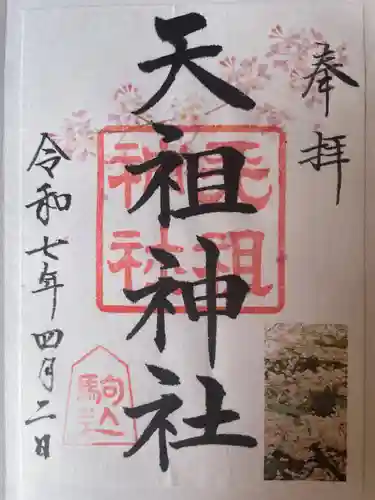 奉拝
天祖神社
天祖神社
駒込
令和七年四月二日